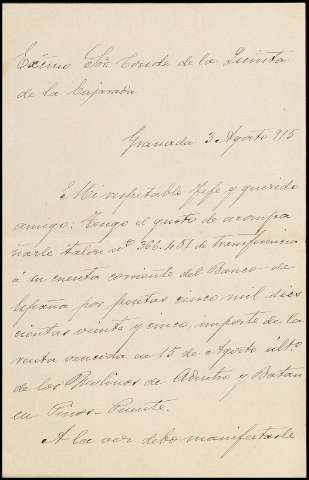 Excmo Sör Conde de la Quinta
de la Enjarada
Granada 3 Agosto 915
Mi respetable Jefe y querido
amigo: Tengo el gusto de acompa
ñarle talón nº 366.451 de transferencia
á su cuenta corriente del Banco de
España por pesetas cinco mil seis
cientas veinte y cinco, importe de la
renta vencida en 15 de Agosto últº
de los Molinos de Adentro y Batan
en Pinos-Puente.
A la vez debo manifestarle